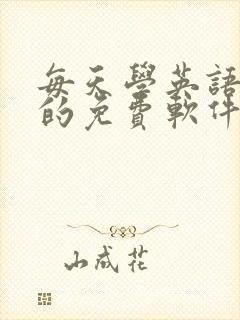 每天學英語
的免費軟件
山成花